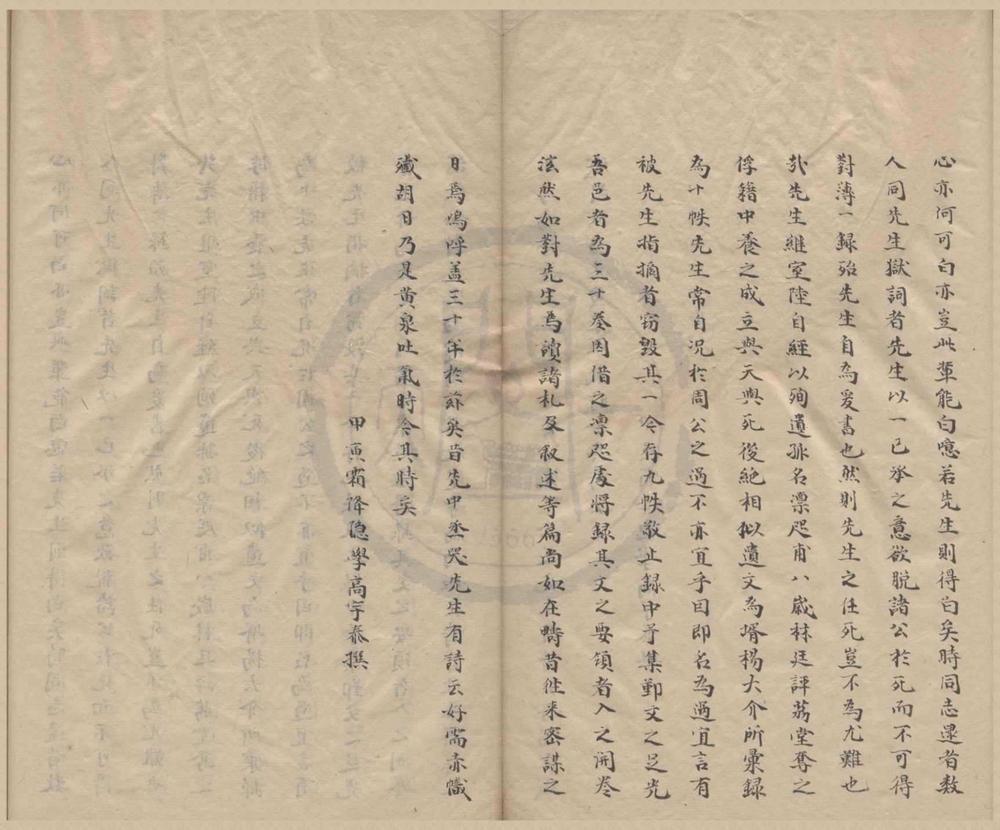 心亦何可白亦豈此輩能白噫若先生則得白矣時同志逮者数
人同先生獄詞者先生以一已承之意欲脫諸公於死而不可得
對薄一録殆先生自為爰書也然則先生之任死豈不為尤難也
哉先生繼室陸自經以殉遺孤名凛咫甫八歲林廷評荔堂奪之
俘籍中養之成立與天與死後絕相似遺文為壻楊大介所彙録
為十帙先生常自况於周公之過不亦宜乎因即名為過宜言有
被先生指摘者窃毀其一今存九帙敬止録中予集鄞文之足光
吾邑者為三十卷因借之凛咫處将録其文之要領者入之開卷
泫然如對先生焉讀諸札及叙述等篇尚如在疇昔徃来密謀之
日焉嗚呼盖三十年於茲矣昔先中丞哭先生有詩云好需赤幟
殱胡日乃是黄泉吐氣時今其時矣
甲寅霜降隐學高宇泰撰